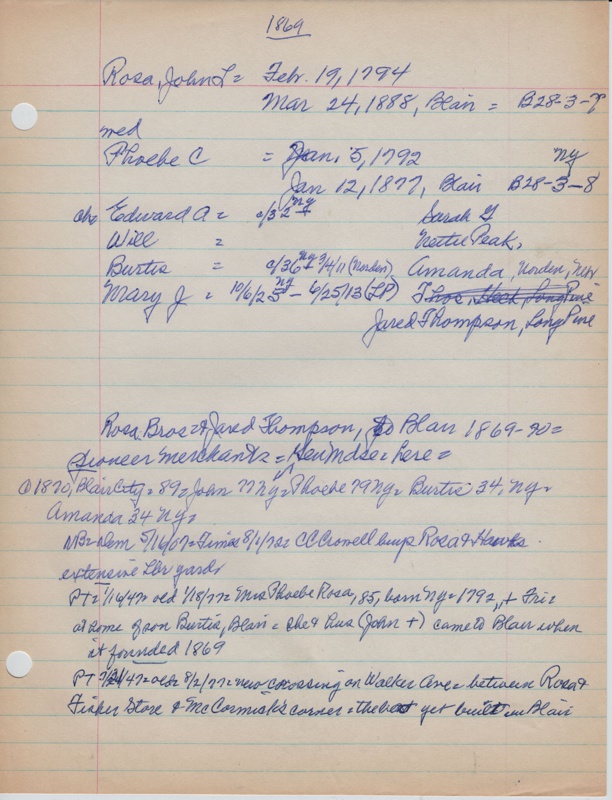 1869
Rosa, John L = Feb. 19, 1794
Mar 24, 1888, Blair = B28-3-7
med
Phoebe C = Jan. 5, 1792 ny
Jan 12, 1877, Blair B28-3-8
chr Edward A = c/32 ny + Sarah Y
Will = Nettie Peak,
Burtis = c/36 ny - 3/4/11 (Norden) Amanda, Norden, Nebr
Mary J = 10/6/25 ny - 6/25/13 (LP) Thos, Heck, Long Pine
Jared Thompson, Long Pine
Rosa Bros & Jared Thompson, to Blair 1869-70 =
pioneer merchants = Gen Mdse = here =
@ 1870, Blair City = 89 = John 77 ny = Phoebe 79 ny = Burtis 34, ny =
Amanda 34 ny =
NB = Dem 5/16/07 = Times 8/1/72 = CC Crowell buys Rosa & Hawks
extensive lbr yards
PT = 1/16/47 = old 1/18/77 = Mrs Phoebe Rosa, 85, born ny = 1792, + Fri =
at home of son Burtis, Blair = she & hus (John +) came to Blair when
it founded 1869
PT 7/31/47 = old = 8/2/77 = new crossing on Walker Ave = between Rosa &
Fisher Store & McCormick's corner = the best yet built in Blair